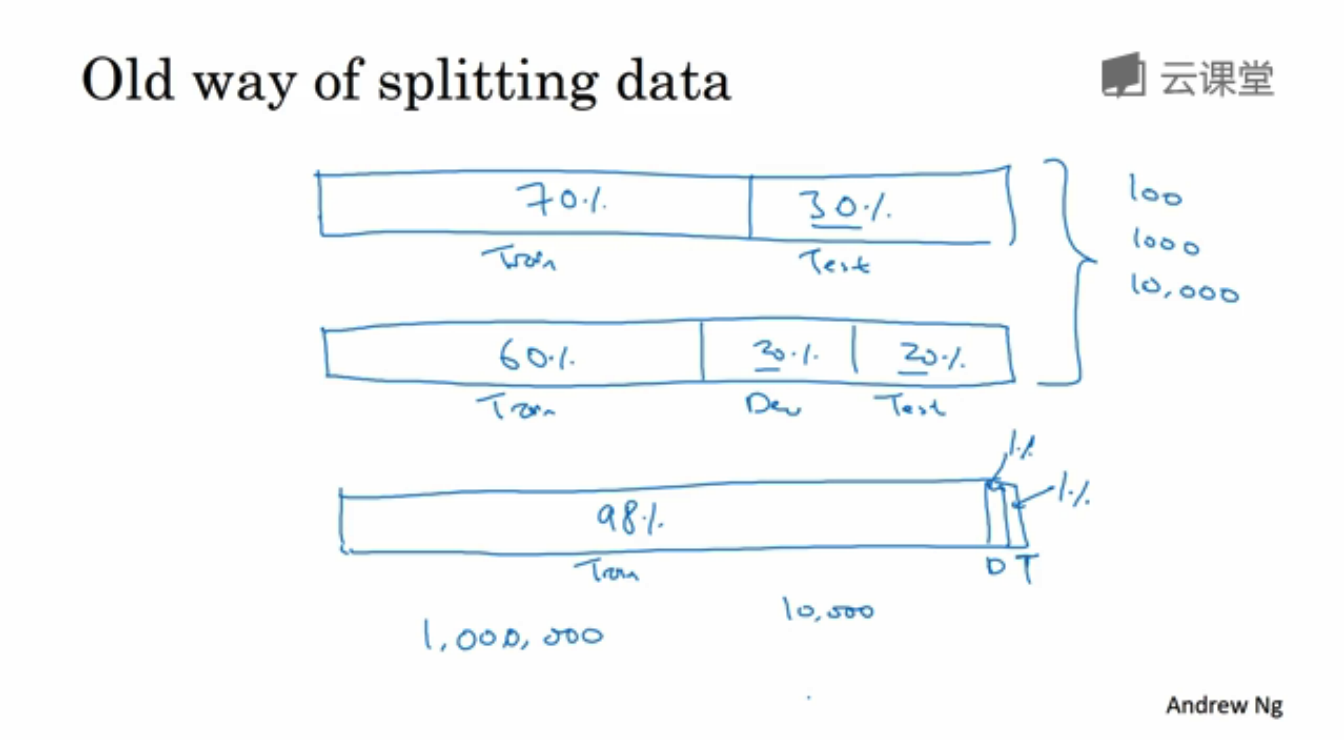 Old way of splitting data
云课堂
70% 30%
Train Test
100
1000
10,000
60% 20% 20%
Train Dev Test
1%
1%
98%
Train D T
10,000
1,000,000
Andrew Ng